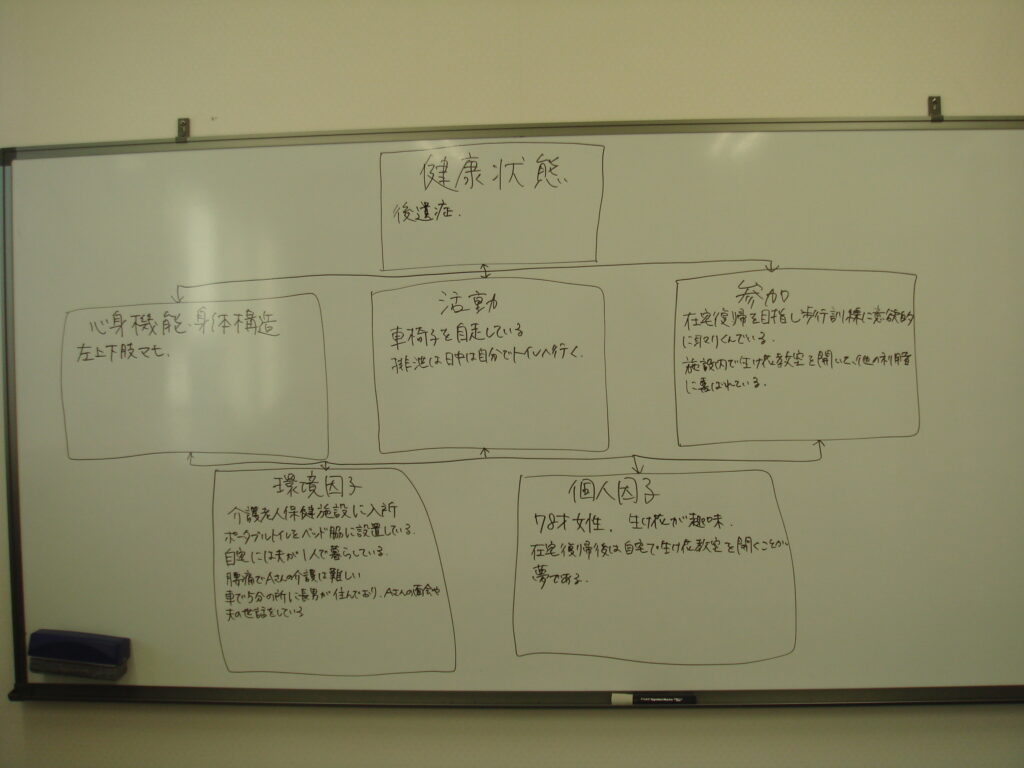 健康状態
後遺症.
心身機能・身体構造
左上下肢マヒ.
活動
車椅子を自走している
排泄は日中は自分でトイレへ行く.
参加
在宅復帰を目指し歩行訓練に意欲的
に取りくんでいる.
施設内で生け花教室を開いて、他の利用者
に喜ばれている.
環境因子
介護老人保健施設に入所
ポータブルトイレをベッド脇に設置している.
自宅には夫が1人で暮らしている.
腰痛でAさんの介護は難しい
車で5分の所に長男が住んでおり、Aさんの面会や
夫の世話をしている
個人因子
78才女性. 生け花が趣味.
在宅復帰後は自宅で生け花教室を開くことが
夢である.